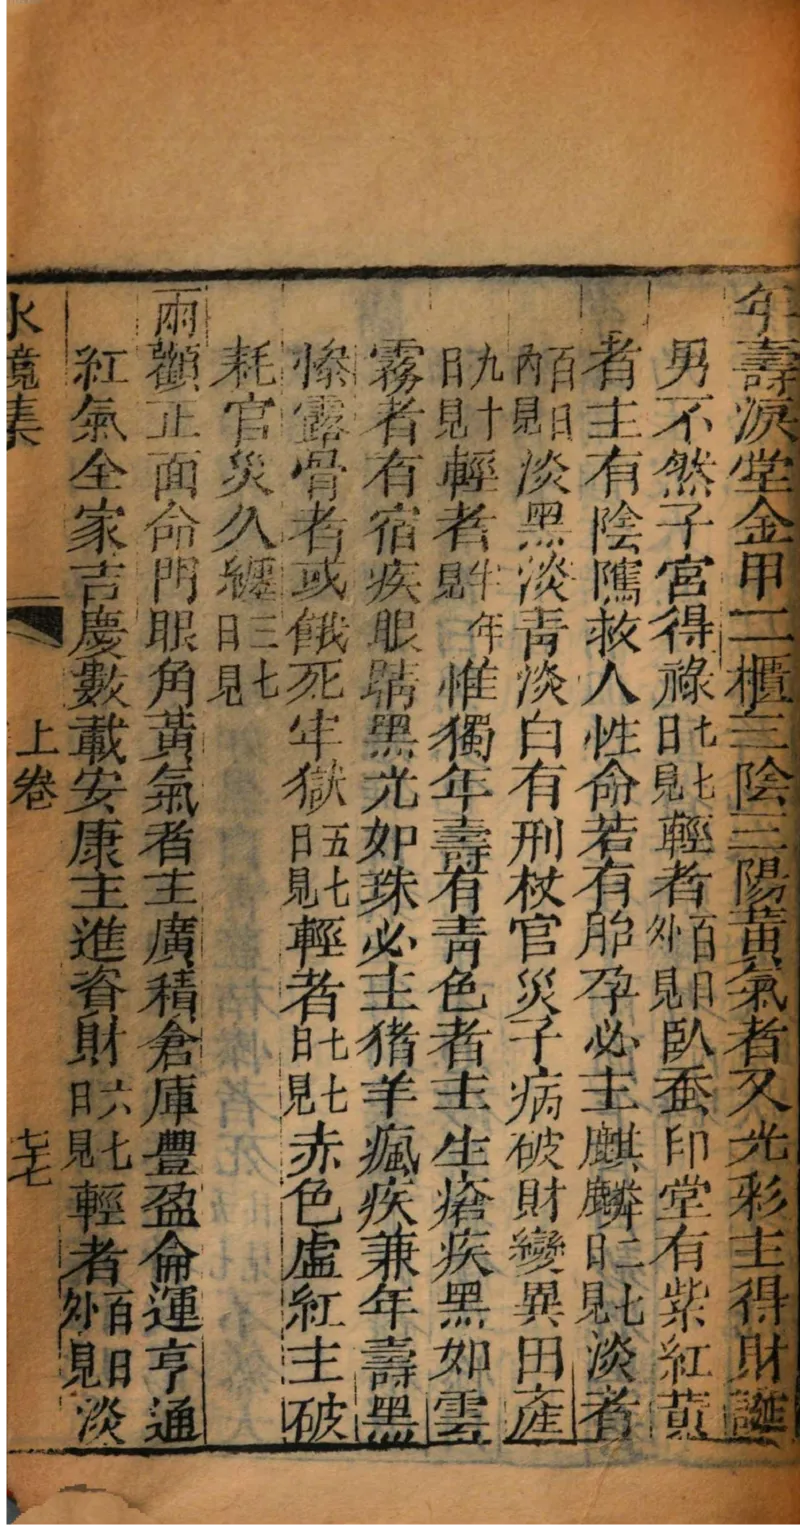 年壽淚堂金甲二櫃三陰三陽黃氣者又光彩主得財誕
男不然子宮得祿七七日見輕者百日外見臥蚕印堂有紫紅黃
者主有陰隲救人性命若有胎孕必主麒麟二七日見淡者
百日內見淡黑淡青淡白有刑杖官災子病破財變異田產
九十日見輕者半年見惟獨年壽有青色者主生瘡疾黑如雲
霧者有宿疾眼睛黑光如珠必主猪羊瘋疾兼年壽黑
慘露骨者或餓死牢獄五七日見輕者七七日見赤色虛紅主破
耗官災久纏三七日見
兩顴正面命門眼角黃氣者主廣積倉庫豐盈倫運亨通
紅氣全家吉慶數載安康主進資財六七日見輕者百日外見淡
水鏡集 上卷 七七